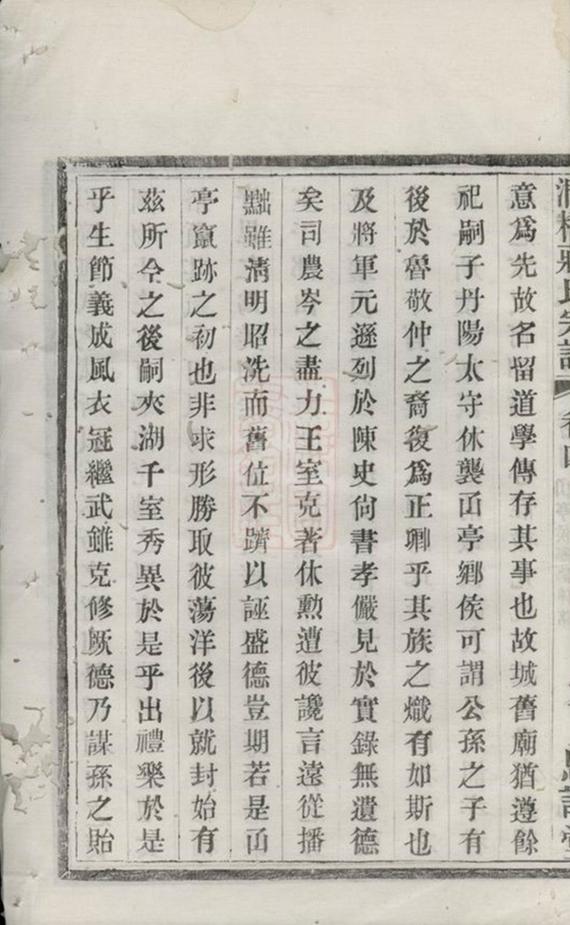 蔣氏宗譜 卷四
意爲先故名留道學傳存其事也故城舊廟猶遵餘
祀嗣子丹陽太守休襲𠙽亭鄉侯可謂公孫之子有
後於魯敬仲之裔復爲正卿乎其族之熾有如斯也
及將軍元遜列於陳史尙書孝儼見於實錄無遺德
矣司農岑之盡力王室克著休勲遭彼讒言遠從播
黜雖淸明昭洗而舊位不躋以誣盛德豈期若是𠙽
亭竄跡之初也非求形勝取彼蕩洋後以就封始有
茲所今之後嗣夾湖千室秀異於是乎出禮樂於是
乎生節義成風衣冠繼武雖克修厥德乃謀孫之貽